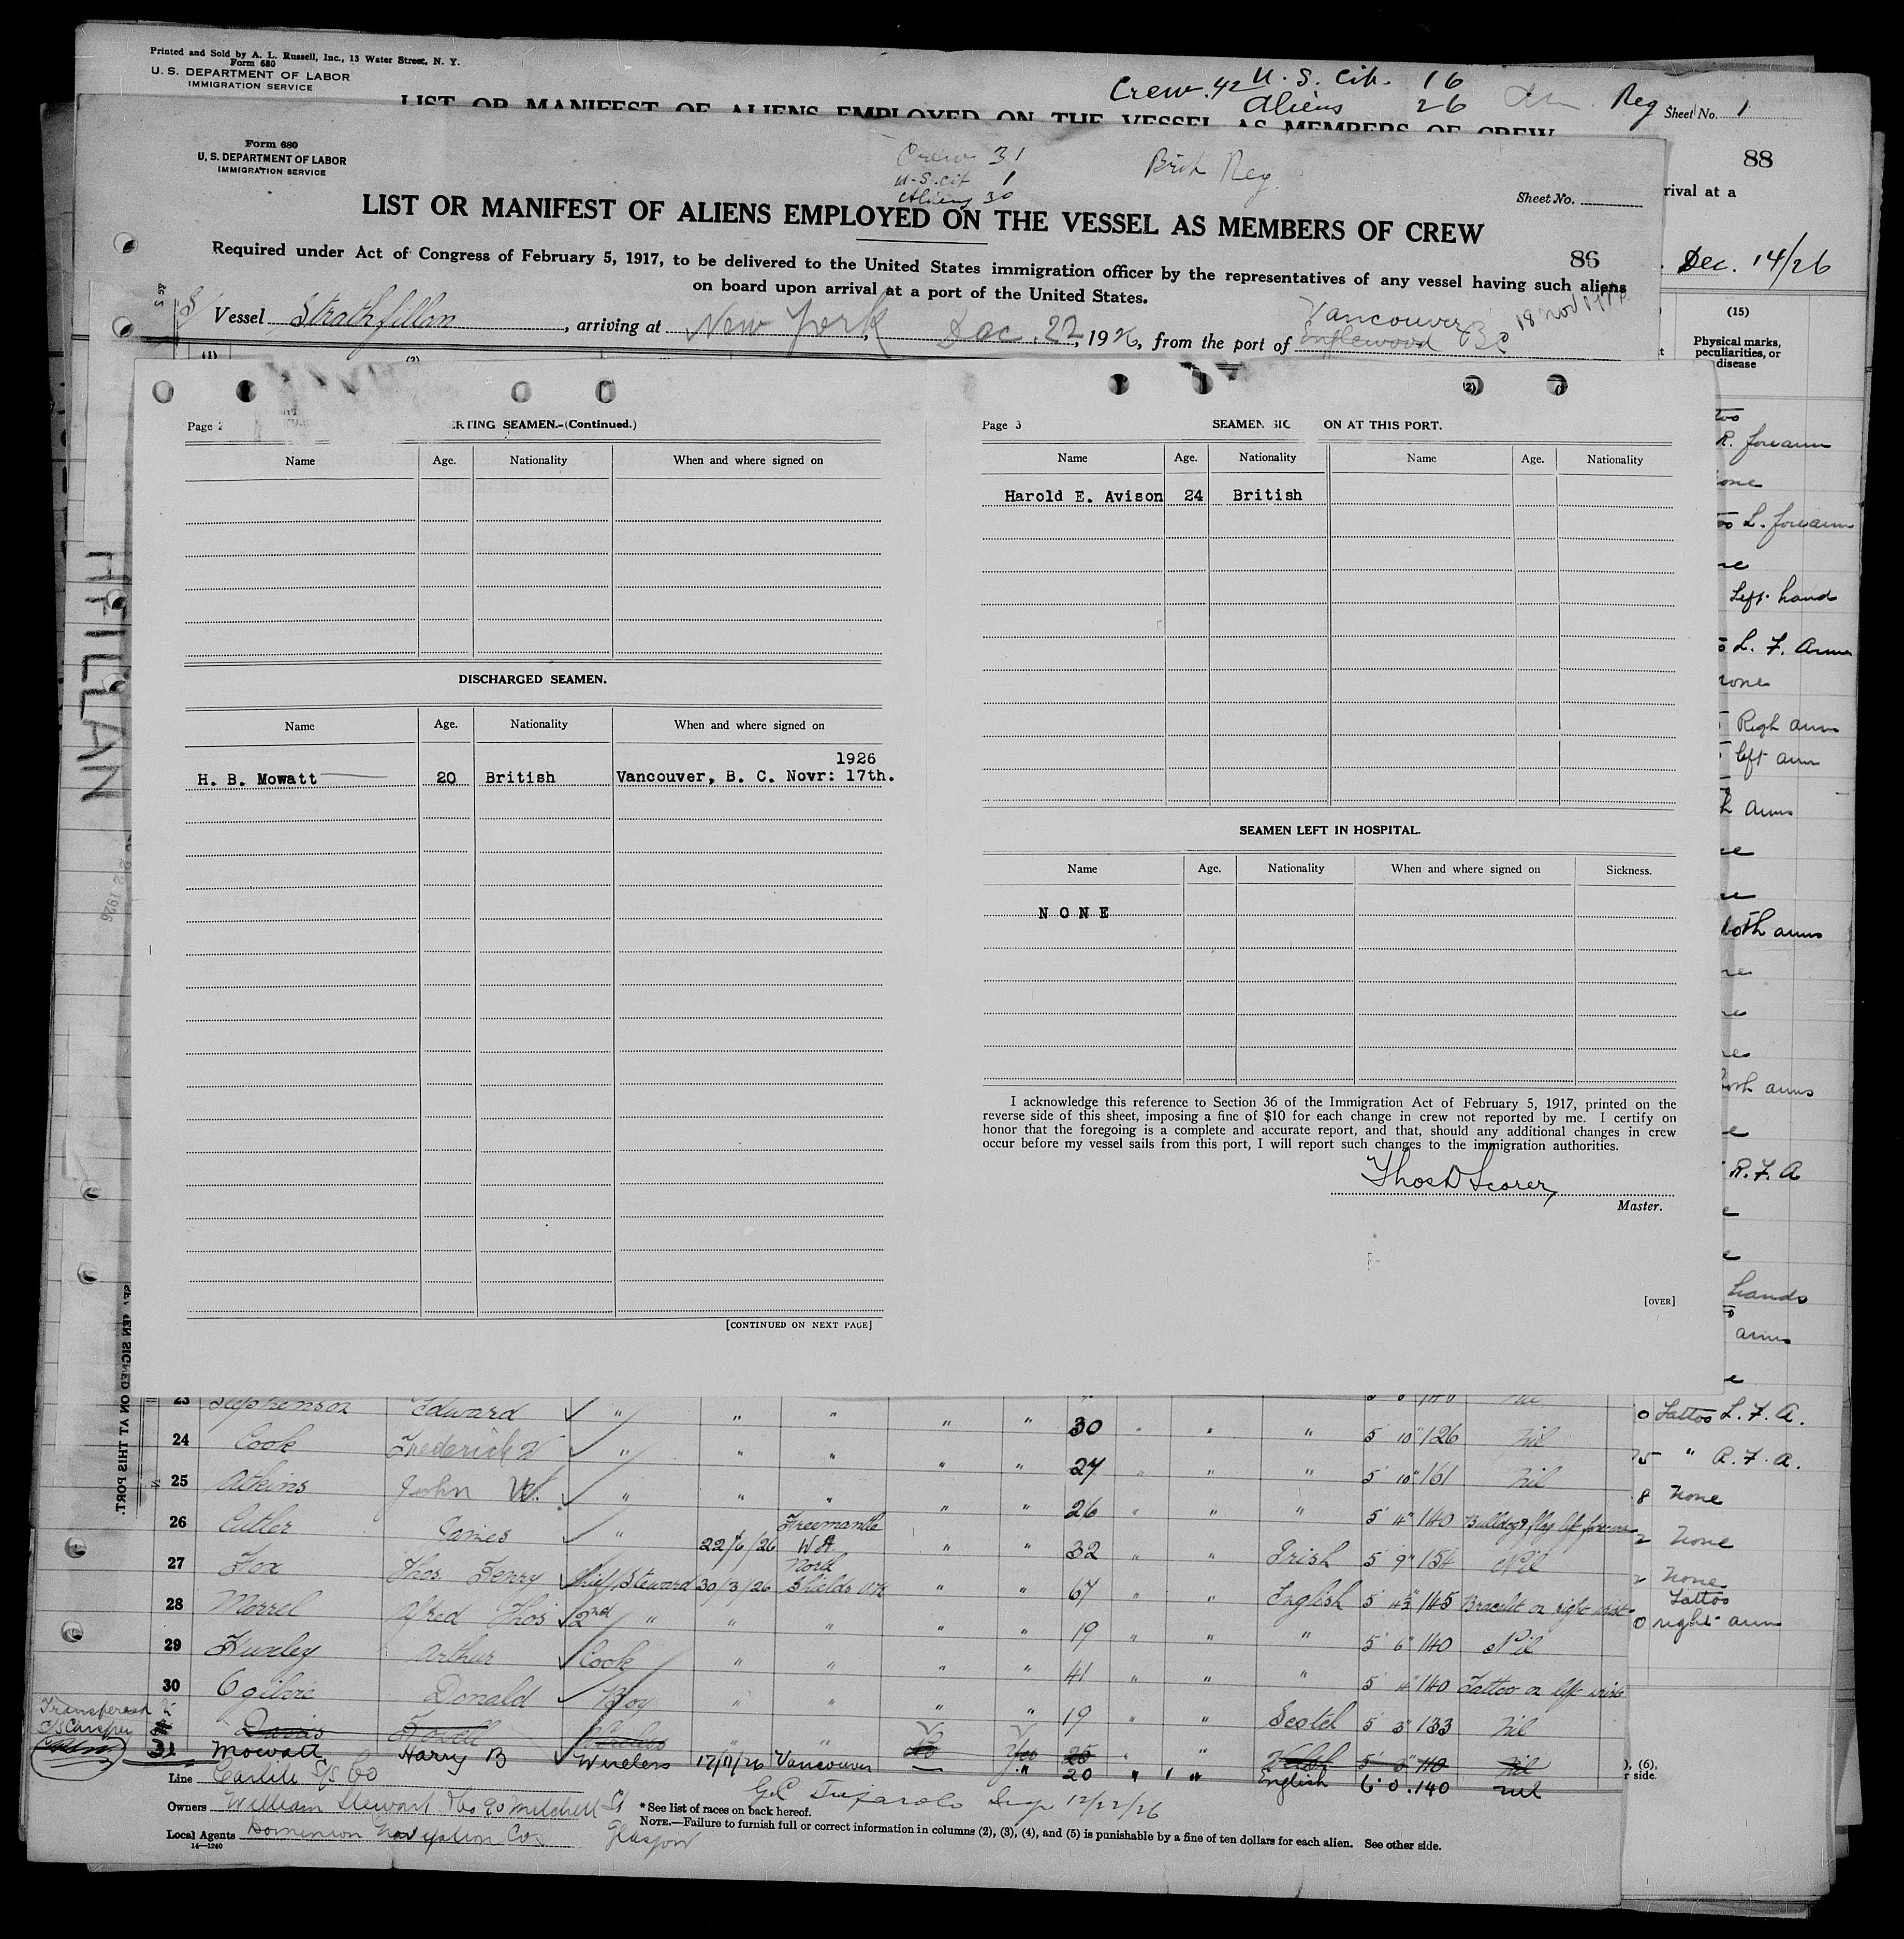 Printed and Sold by A. L. Russell, Inc., 13 Water Street, N. Y.
Form 680
U. S. DEPARTMENT OF LABOR
IMMIGRATION SERVICE
Crew. 42 U. S. Cit. 16
Aliens 26
Reg Sheet No. 1
LIST OR MANIFEST OF ALIENS EMPLOYED ON THE VESSEL AS MEMBERS OF CREW
88
rival at a
Dec. 14/26
(15)
Physical marks,
peculiarities, or
disease
Form 680
U. S. DEPARTMENT OF LABOR
IMMIGRATION SERVICE
Crew 31
U.S. Cit 1
Aliens 30
Brit Reg.
Sheet No.
LIST OR MANIFEST OF ALIENS EMPLOYED ON THE VESSEL AS MEMBERS OF CREW
86
Required under Act of Congress of February 5, 1917, to be delivered to the United States immigration officer by the representatives of any vessel having such aliens
on board upon arrival at a port of the United States.
Vancouver 18 Nov
S/ Vessel Strathfillan, arriving at New York, Dec. 22, 1926, from the port of Englewood BC
(1) (2)
HFILLAN
22 1926
Page 2 ERTING SEAMEN.-(Continued.)
Name Age. Nationality When and where signed on
DISCHARGED SEAMEN.
Name Age. Nationality When and where signed on
1926
H. B. Mowatt 20 British Vancouver, B. C. Novr: 17th.
[CONTINUED ON NEXT PAGE]
Page 3 SEAMEN SIG ON AT THIS PORT.
Name Age. Nationality Name Age. Nationality
Harold E. Avison 24 British
SEAMEN LEFT IN HOSPITAL.
Name Age. Nationality When and where signed on Sickness.
NONE
I acknowledge this reference to Section 36 of the Immigration Act of February 5, 1917, printed on the
reverse side of this sheet, imposing a fine of $10 for each change in crew not reported by me. I certify on
honor that the foregoing is a complete and accurate report, and that, should any additional changes in crew
occur before my vessel sails from this port, I will report such changes to the immigration authorities.
Thos D Scorer
Master.
[OVER]
R. forearm
L. forearm
Left hand
L. F. Arm
none
Righ arm
left arm
arms
both arms
both arms
R. F. A
hands
arms
Tattoo L. F. A.
" R. F. A.
8 None
2 None
2 None
Tattoo
0 right arm
SIGNED ON AT THIS PORT.
23 Stephenson Edward " " " " " 30 " " "
24 Cook Frederick W " " " " " 27 " " " 5 10" 126 Nil
25 Atkins John W. " " " " " 26 " " " 5 10" 161 Nil
26 Cutler James " 22/6/26 Freemantle W A " " 32 " " Irish 5 4" 140 Bulldog & flag left forearm
27 Fox Thos Henry Chief Steward 30/3/26 North Shields " " 67 " " English 5 9" 154 Nil
28 Morrel Alfred Thos 2nd " " " " " 19 " " " 5 4½" 145 Bracelet on right wrist
29 Huxley Arthur Cook " " " " 41 " " " 5 6" 140 Nil
30 Ogilvie Donald Boy " " " " 19 " " Scotch 5 4" 140 Tattoo on left wrist
Davis Howell Wireless " " No Yes 25 " " Welsh 5 3" 133 Nil
31 Mowatt Harry B Wireless 17/11/26 Vancouver — " 20 " " English 6 0 140 nil
Line Carlile S/S Co
G.C. Insp 12/22/26
Owners William Stewart & Co 90 Mitchell St
Glasgow
Local Agents Dominion Navigation Cos
14—1240
* See list of races on back hereof.
NOTE.—Failure to furnish full or correct information in columns (2), (3), (4), and (5) is punishable by a fine of ten dollars for each alien. See other side.
), (6),
r side.